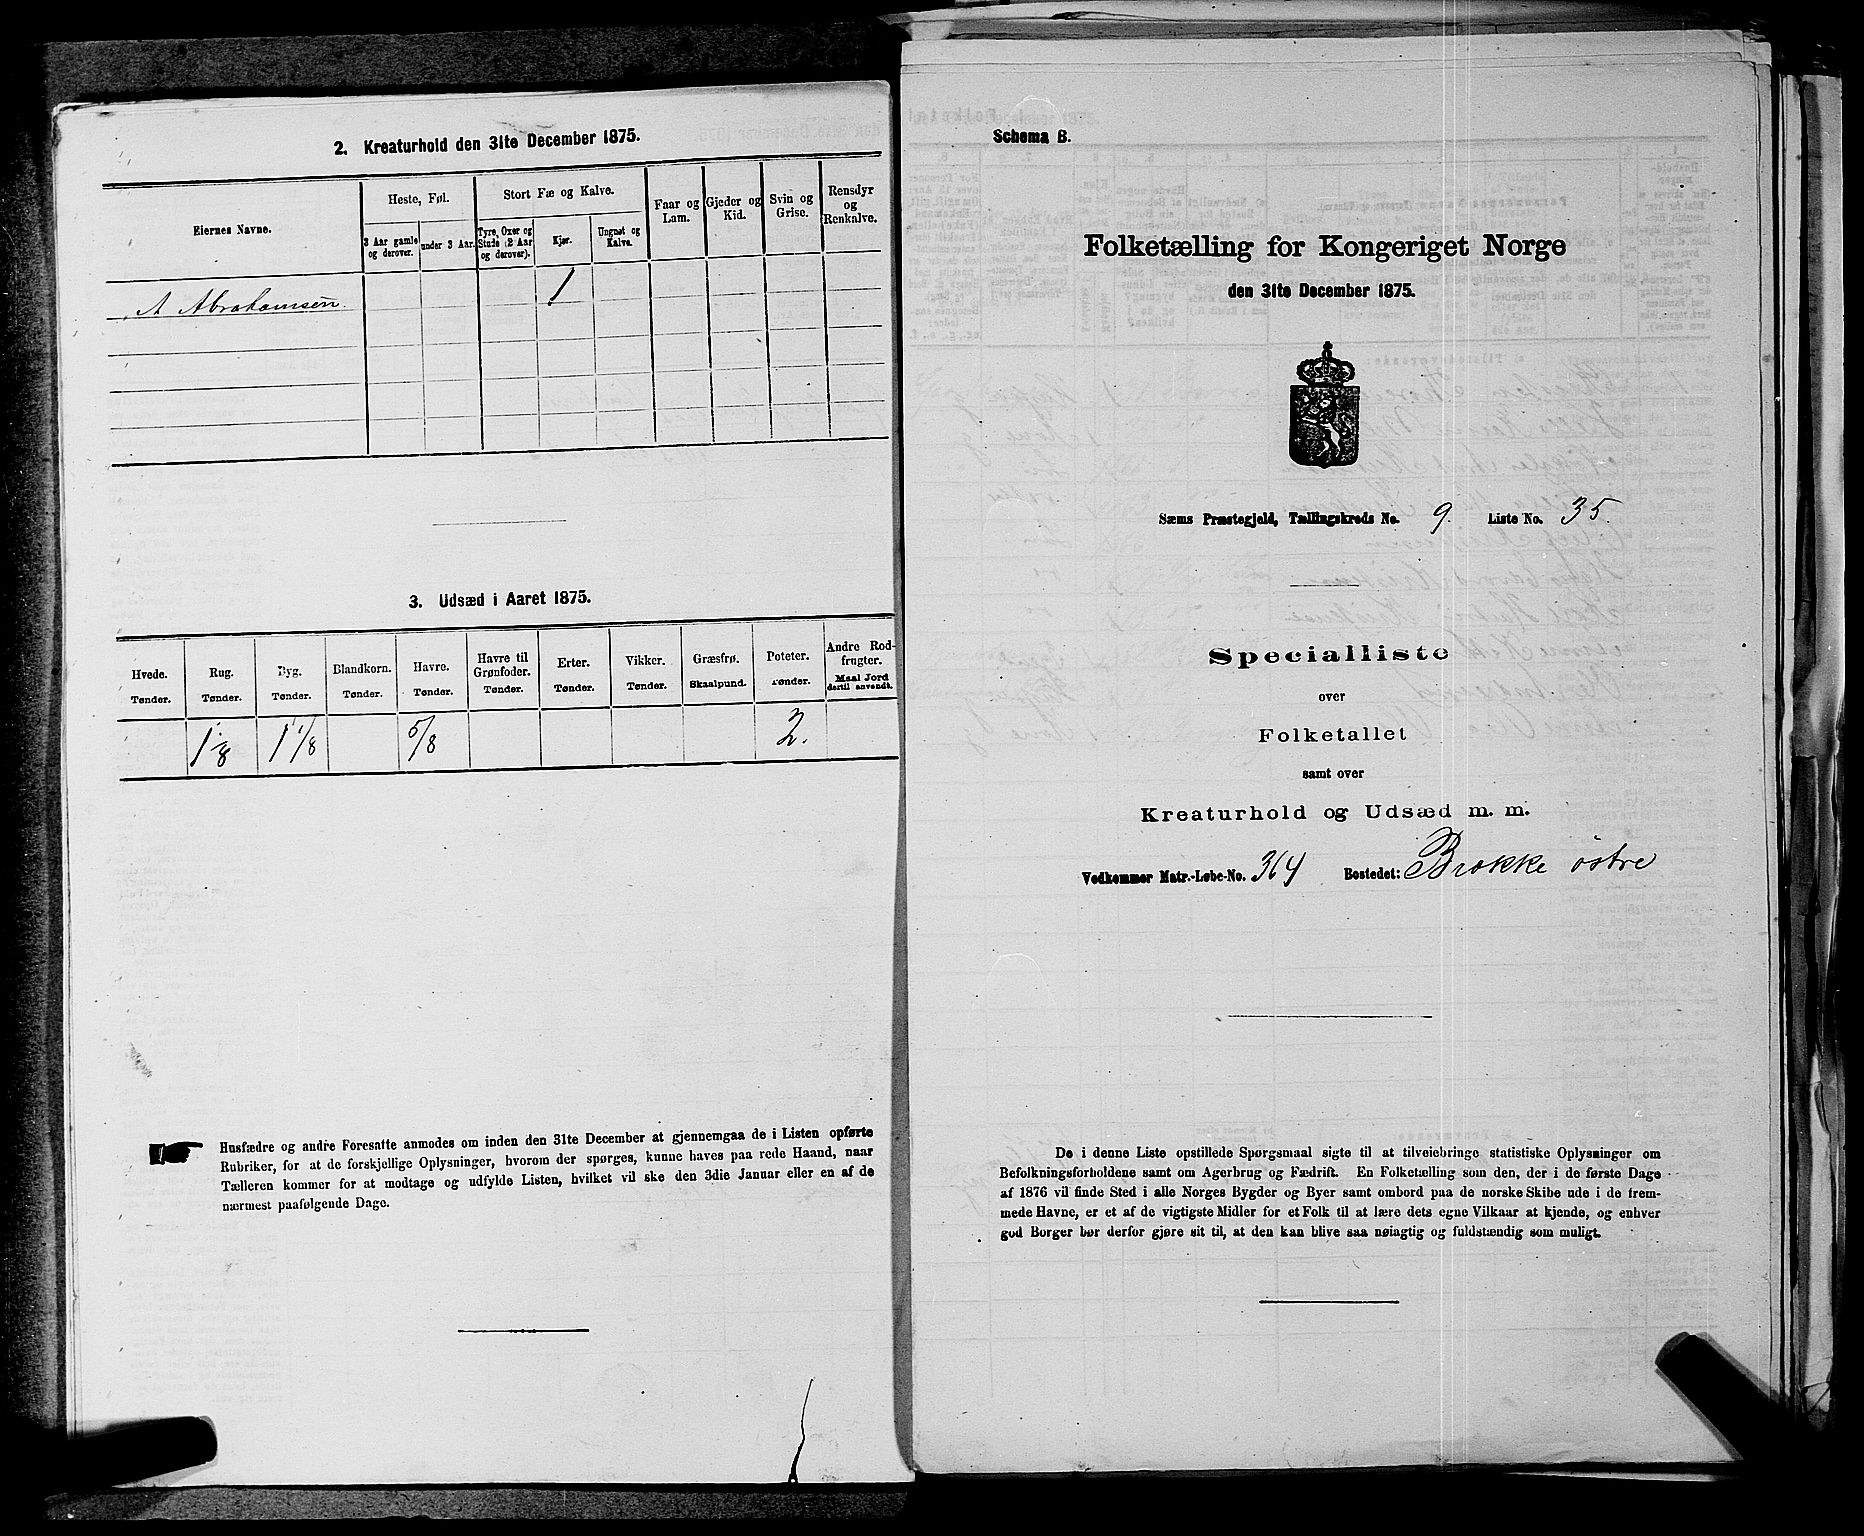 2. Kreaturhold den 31te December 1875.
Eiernes Navne.
Heste, Føl.
Stort Fæ og Kalve.
Faar og Lam.
Gjeder og Kid.
Svin og Grise.
Rensdyr og Renkalve.
3 Aar gamle og derover.
under 3 Aar.
Tyre, Oxer og Stude (2 Aar og derover).
Kjør.
Ungnøt og Kalve.
A Abrahamsen. 1
3. Udsæd i Aaret 1875.
Hvede. Rug. Byg. Blandkorn. Havre. Havre til Grønfoder. Erter. Vikker. Græsfrø. Poteter. Andre Rodfrugter.
Tønder. Tønder. Tønder. Tønder. Tønder. Tønder. Tønder. Tønder. Skaalpund. Tønder. Maal Jord dertil anvendt.
1/8 1 1/8 5/8 2.
Husfædre og andre Foresatte anmodes om inden den 31te December at gjennemgaa de i Listen opførte
Rubriker, for at de forskjellige Oplysninger, hvorom der spørges, kunne haves paa rede Haand, naar
Tælleren kommer for at modtage og udfylde Listen, hvilket vil ske den 3die Januar eller en af de
nærmest paafølgende Dage.
Schema B.
Folketælling for Kongeriget Norge
den 31te December 1875.
Sæms Præstegjeld, Tællingskreds No. 9. Liste No. 35.
Specialliste
over
Folketallet
samt over
Kreaturhold og Udsæd m. m.
Vedkommer Matr.-Løbe-No. 364 Bostedet: Brække østre
De i denne Liste opstillede Spørgsmaal sigte til at tilveiebringe statistiske Oplysninger om
Befolkningsforholdene samt om Agerbrug og Fædrift. En Folketælling som den, der i de første Dage
af 1876 vil finde Sted i alle Norges Bygder og Byer samt ombord paa de norske Skibe ude i de frem-
mede Havne, er et af de vigtigste Midler for et Folk til at lære dets egne Vilkaar at kjende, og enhver
god Borger bør derfor gjøre sit til, at den kan blive saa nøiagtig og fuldstændig som muligt.